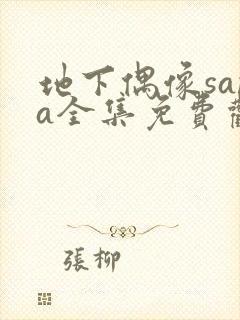 地下偶像sa
a全集免費
張柳